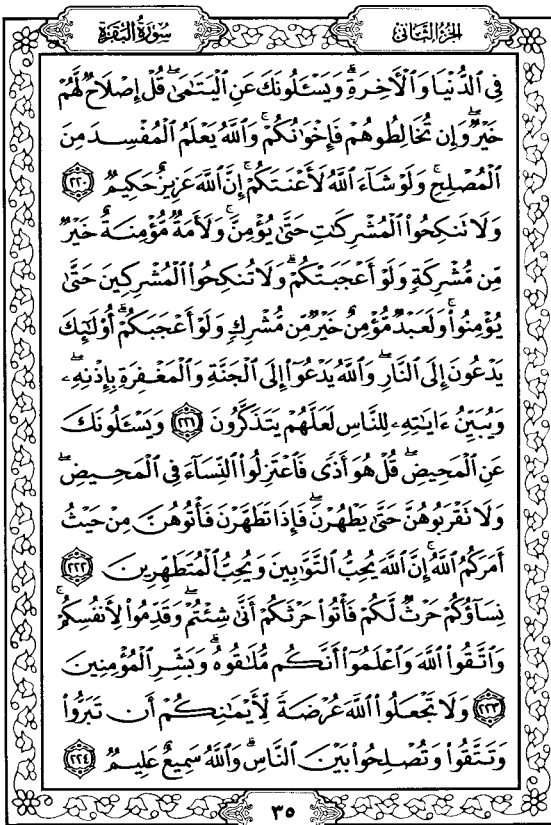 الجزء الثانى
سورة البقرة
فِى ٱلدُّنْيَا وَٱلْأَخِرَةِ ۗ وَيَسْـَٔلُونَكَ عَنِ ٱلْيَتَـٰمَىٰ ۖ قُلْ إِصْلَاحٌ لَّهُمْ
خَيْرٌ ۖ وَإِن تُخَالِطُوهُمْ فَإِخْوَٰنُكُمْ ۚ وَٱللَّهُ يَعْلَمُ ٱلْمُفْسِدَ مِنَ
ٱلْمُصْلِحِ ۚ وَلَوْ شَآءَ ٱللَّهُ لَأَعْنَتَكُمْ ۚ إِنَّ ٱللَّهَ عَزِيزٌ حَكِيمٌ ٢٢٠
وَلَا تَنكِحُوا۟ ٱلْمُشْرِكَـٰتِ حَتَّىٰ يُؤْمِنَّ ۚ وَلَأَمَةٌ مُّؤْمِنَةٌ خَيْرٌ
مِّن مُّشْرِكَةٍ وَلَوْ أَعْجَبَتْكُمْ ۗ وَلَا تُنكِحُوا۟ ٱلْمُشْرِكِينَ حَتَّىٰ
يُؤْمِنُوا۟ ۚ وَلَعَبْدٌ مُّؤْمِنٌ خَيْرٌ مِّن مُّشْرِكٍ وَلَوْ أَعْجَبَكُمْ ۗ أُو۟لَـٰٓئِكَ
يَدْعُونَ إِلَى ٱلنَّارِ ۖ وَٱللَّهُ يَدْعُوٓا۟ إِلَى ٱلْجَنَّةِ وَٱلْمَغْفِرَةِ بِإِذْنِهِۦ ۖ
وَيُبَيِّنُ ءَايَـٰتِهِۦ لِلنَّاسِ لَعَلَّهُمْ يَتَذَكَّرُونَ ٢٢١ وَيَسْـَٔلُونَكَ
عَنِ ٱلْمَحِيضِ ۖ قُلْ هُوَ أَذًى فَٱعْتَزِلُوا۟ ٱلنِّسَآءَ فِى ٱلْمَحِيضِ ۖ
وَلَا تَقْرَبُوهُنَّ حَتَّىٰ يَطْهُرْنَ ۖ فَإِذَا تَطَهَّرْنَ فَأْتُوهُنَّ مِنْ حَيْثُ
أَمَرَكُمُ ٱللَّهُ ۚ إِنَّ ٱللَّهَ يُحِبُّ ٱلتَّوَّٰبِينَ وَيُحِبُّ ٱلْمُتَطَهِّرِينَ ٢٢٢
نِسَآؤُكُمْ حَرْثٌ لَّكُمْ فَأْتُوا۟ حَرْثَكُمْ أَنَّىٰ شِئْتُمْ ۖ وَقَدِّمُوا۟ لِأَنفُسِكُمْ ۚ
وَٱتَّقُوا۟ ٱللَّهَ وَٱعْلَمُوٓا۟ أَنَّكُم مُّلَـٰقُوهُ ۗ وَبَشِّرِ ٱلْمُؤْمِنِينَ
٢٢٣ وَلَا تَجْعَلُوا۟ ٱللَّهَ عُرْضَةً لِّأَيْمَـٰنِكُمْ أَن تَبَرُّوا۟
وَتَتَّقُوا۟ وَتُصْلِحُوا۟ بَيْنَ ٱلنَّاسِ ۗ وَٱللَّهُ سَمِيعٌ عَلِيمٌ ٢٢٤
٣٥